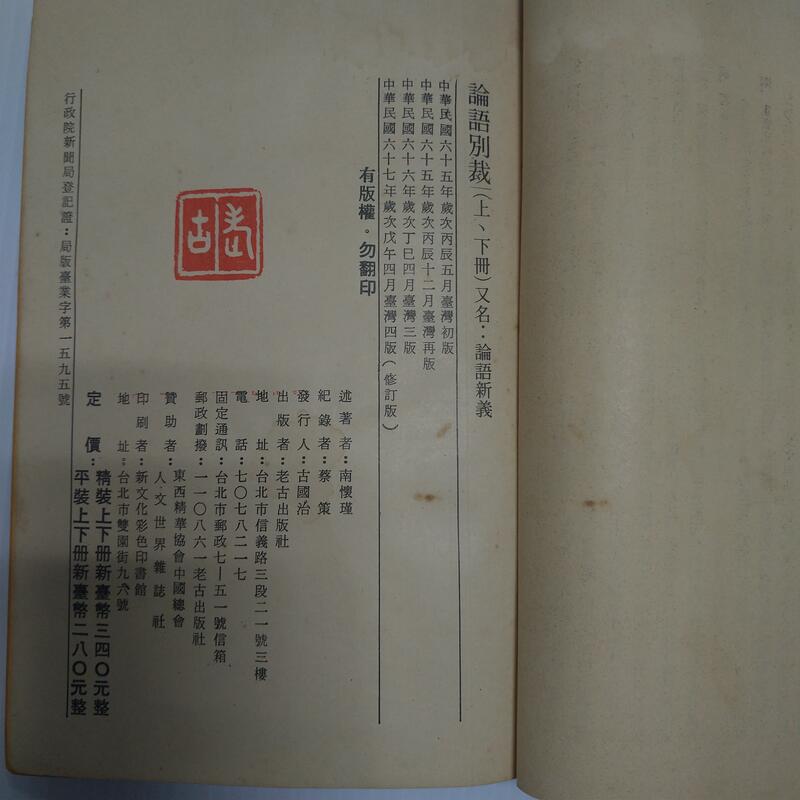 論語別裁(上、下冊)又名:論語新義
中華民國六十五年歲次丙辰五月臺灣初版
中華民國六十五年歲次丙辰十二月臺灣再版
中華民國六十六年歲次丁巳四月臺灣三版
中華民國六十七年歲次戊午四月臺灣四版(修訂版)
有版權・勿翻印
述著者:南懷瑾
紀錄者:蔡策
發行人:古國治
出版者:老古出版社
地址:台北市信義路三段二一號三樓
電話:七〇七八二一七
固定通訊:台北市郵政七—五一號信箱
郵政劃撥:一一〇八六一老古出版社
贊助者:東西精華協會中國總會
人文世界雜誌社
印刷者:新文化彩色印書館
地址:台北市雙園街九六號
定價:精裝上下冊新臺幣三四〇元整
平裝上下冊新臺幣二八〇元整
行政院新聞局登記證:局版臺業字第一五九五號
老古